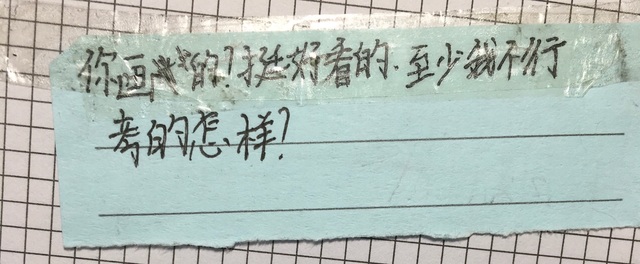 你画的?挺好看的.至少我不行
考的怎样?